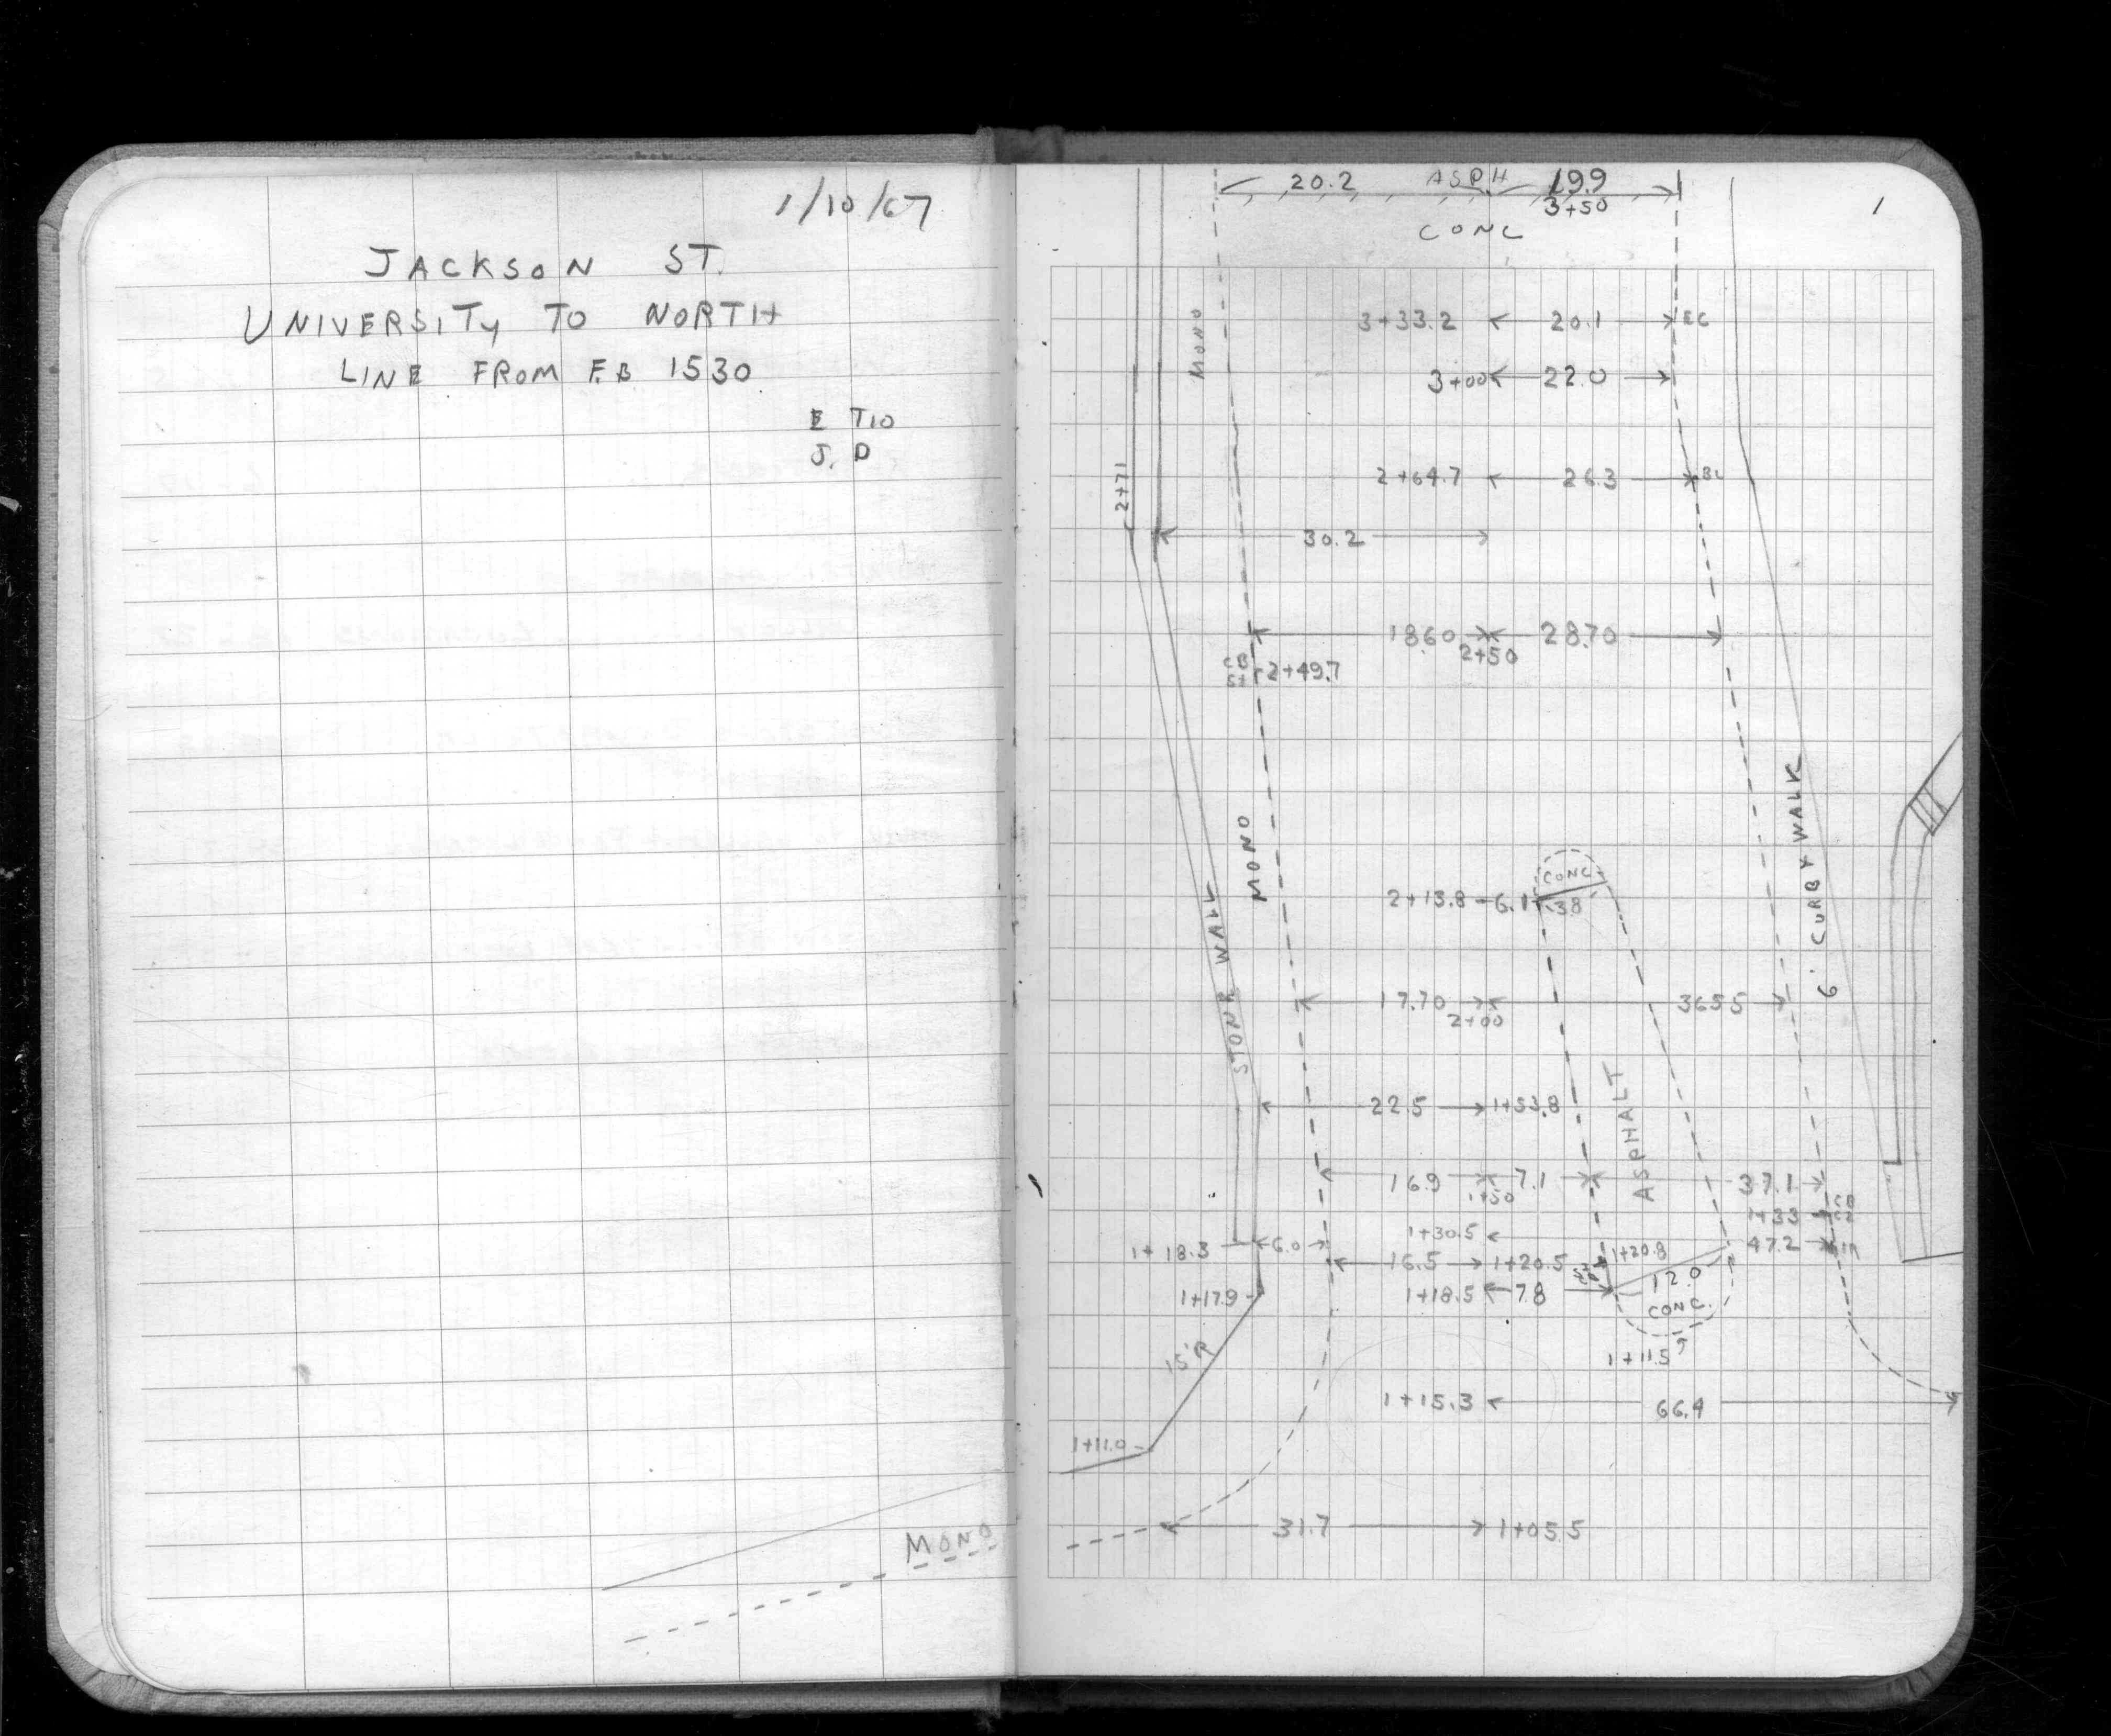 1/10/67
JACKSON ST.
UNIVERSITY TO NORTH
LINE FROM F.B 1530
E T10
J. D
MONO
1
20.2 ASPH 19.9
3+50
CONC
MONO
3+33.2 20.1 EC
3+00 22.0
2+71
2+64.7 26.3 BC
30.2
18.60 28.70
2+50
CB
2+49.7
MONO
6' CURB & WALK
STONE WALL
CONC
2+13.8 6.1 3.8
17.70 36.55
2+00
22.5 1+53.8
ASPHALT
16.9 7.1 37.1
1+50
CB
1+33
1+30.5 47.2
1+18.3 6.0
16.5 1+20.5 1+20.8
1+17.9 1+18.5 7.8 12.0
CONC.
15'R
1+11.5
1+15.3 66.4
1+11.0
31.7 1+05.5